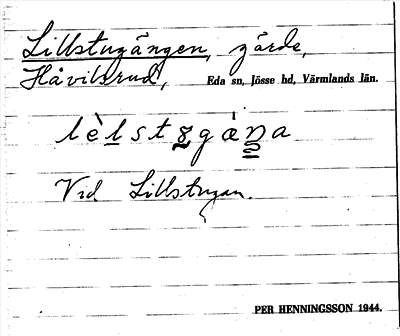 Lillstugängen, gärde,
Håvilsrud, Eda sn, Jösse hd, Värmlands län.
Vid Lillstugan.
PER HENNINGSSON 1944.